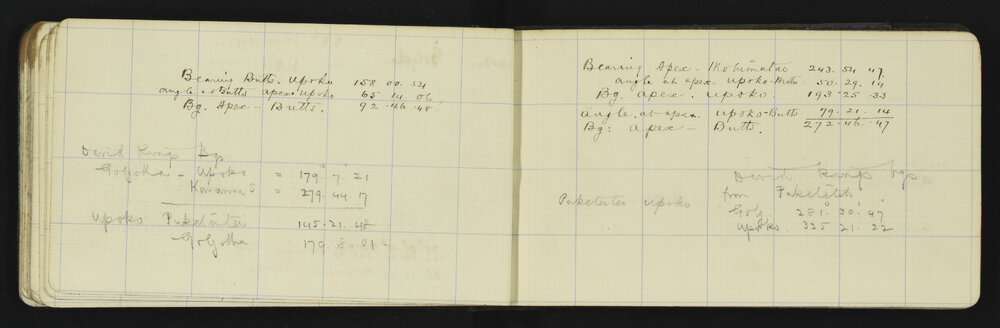 Bearing Butts. Upoko 158. 00. 54
angle . Butts apex upoko 65. 14 06
Bg. Apex - Butts. 92. 46 48
David Kings Bgs
Golgotha - Upoko = 179° 7' 21
S = 279. 44. 17
Upoko 145. 21. 48
Golgotha 179. 8. 01
Bearing Apex - Motumatai 243. 54 47.
angle at apex upoko - Motu 50. 29. 14
Bg. apex. upoko 193. 25. 33
angle. at apex. upoko - Butts 79. 21. 14
Bg: apex - Butts. 272. 46. 47
David Kings bgs
upoko from
Golg. 281° 30' 47
upoko. 325 21. 22